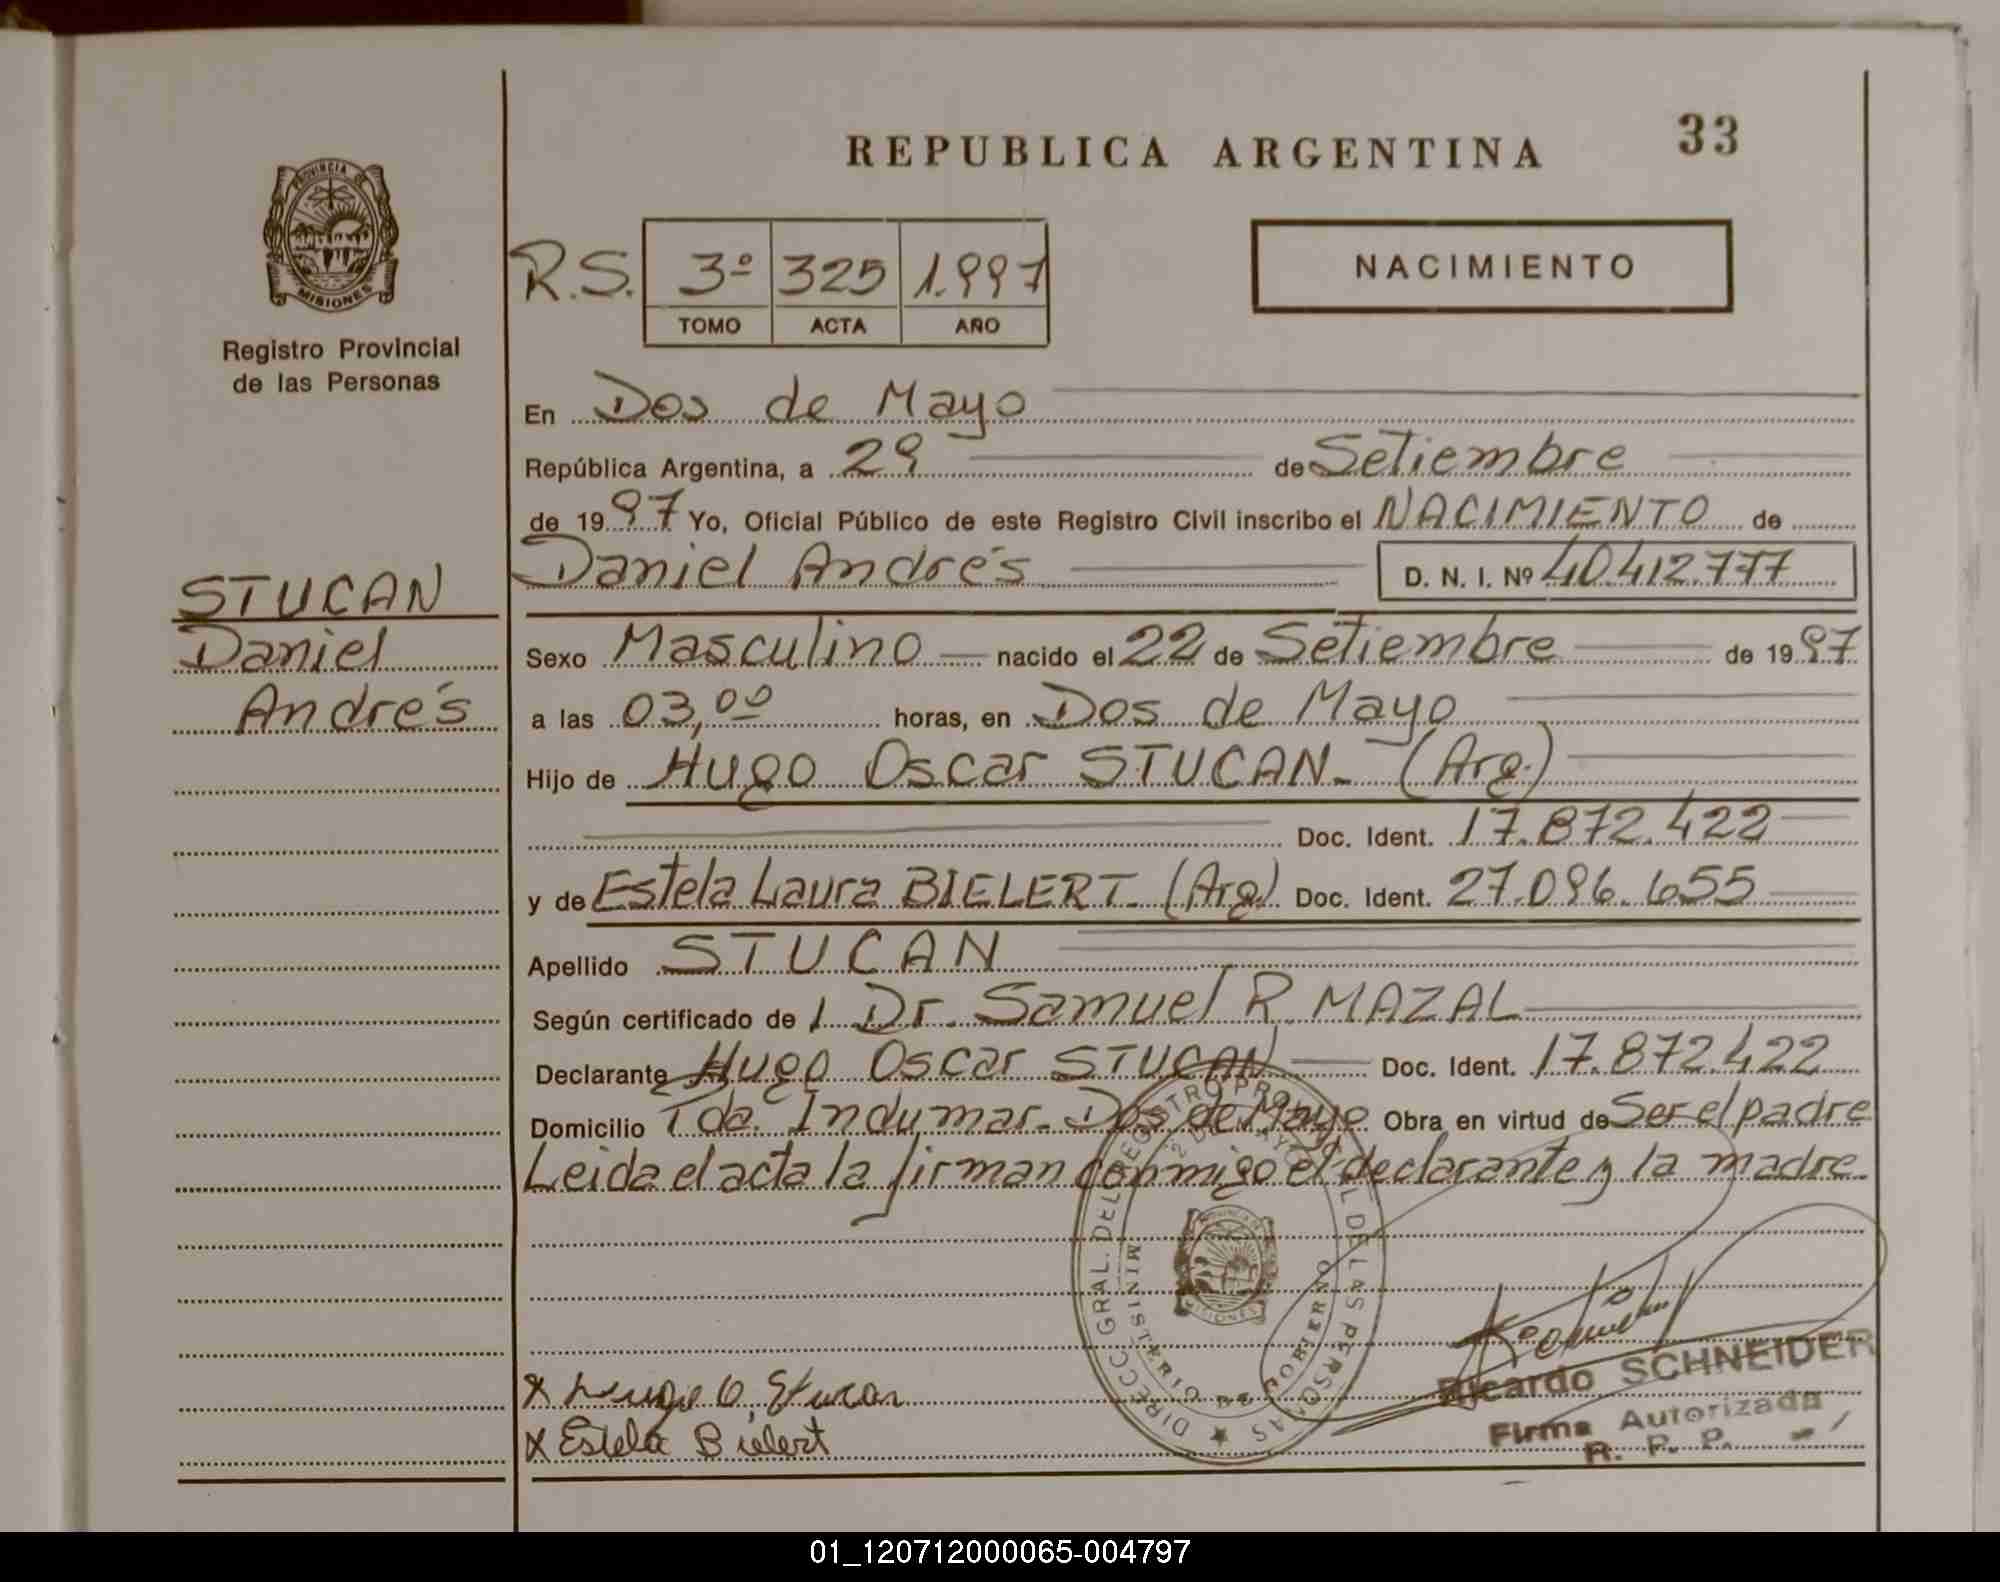 REPUBLICA ARGENTINA
33
PROVINCIA DE
MISIONES
Registro Provincial
de las Personas
R.S. 3º 325 1.997
TOMO ACTA AÑO
NACIMIENTO
En Dos de Mayo
República Argentina, a 29 de Setiembre
de 1997 Yo, Oficial Público de este Registro Civil inscribo el NACIMIENTO de
Daniel Andrés D. N. I. Nº 40.412.777
STUCAN
Daniel
Andrés
Sexo Masculino nacido el 22 de Setiembre de 1997
a las 03,00 horas, en Dos de Mayo
Hijo de Hugo Oscar STUCAN. (Arg.)
Doc. Ident. 17.872.422
y de Estela Laura BIELERT. (Arg) Doc. Ident. 27.096.655
Apellido STUCAN
Según certificado de l Dr. Samuel R. MAZAL
Declarante Hugo Oscar STUCAN Doc. Ident. 17.872.422
Domicilio Tda. Indumar. Dos de Mayo Obra en virtud de Ser el padre
Leida el acta la firman conmigo el declarante y la madre.
DIRECC. GRAL. DEL REGISTRO PROVINCIAL DE LAS PERSONAS
2 DE MAYO
MINISTERIO DE GOBIERNO
MISIONES
x Hugo O. Stucan
x Estela Bielert
Ricardo SCHNEIDER
Firma Autorizada
R. P. P.
01_120712000065-004797